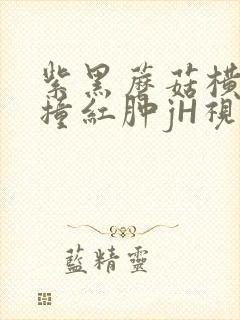 紫黑蘑菇横
撞红肿jH视
蓝精灵